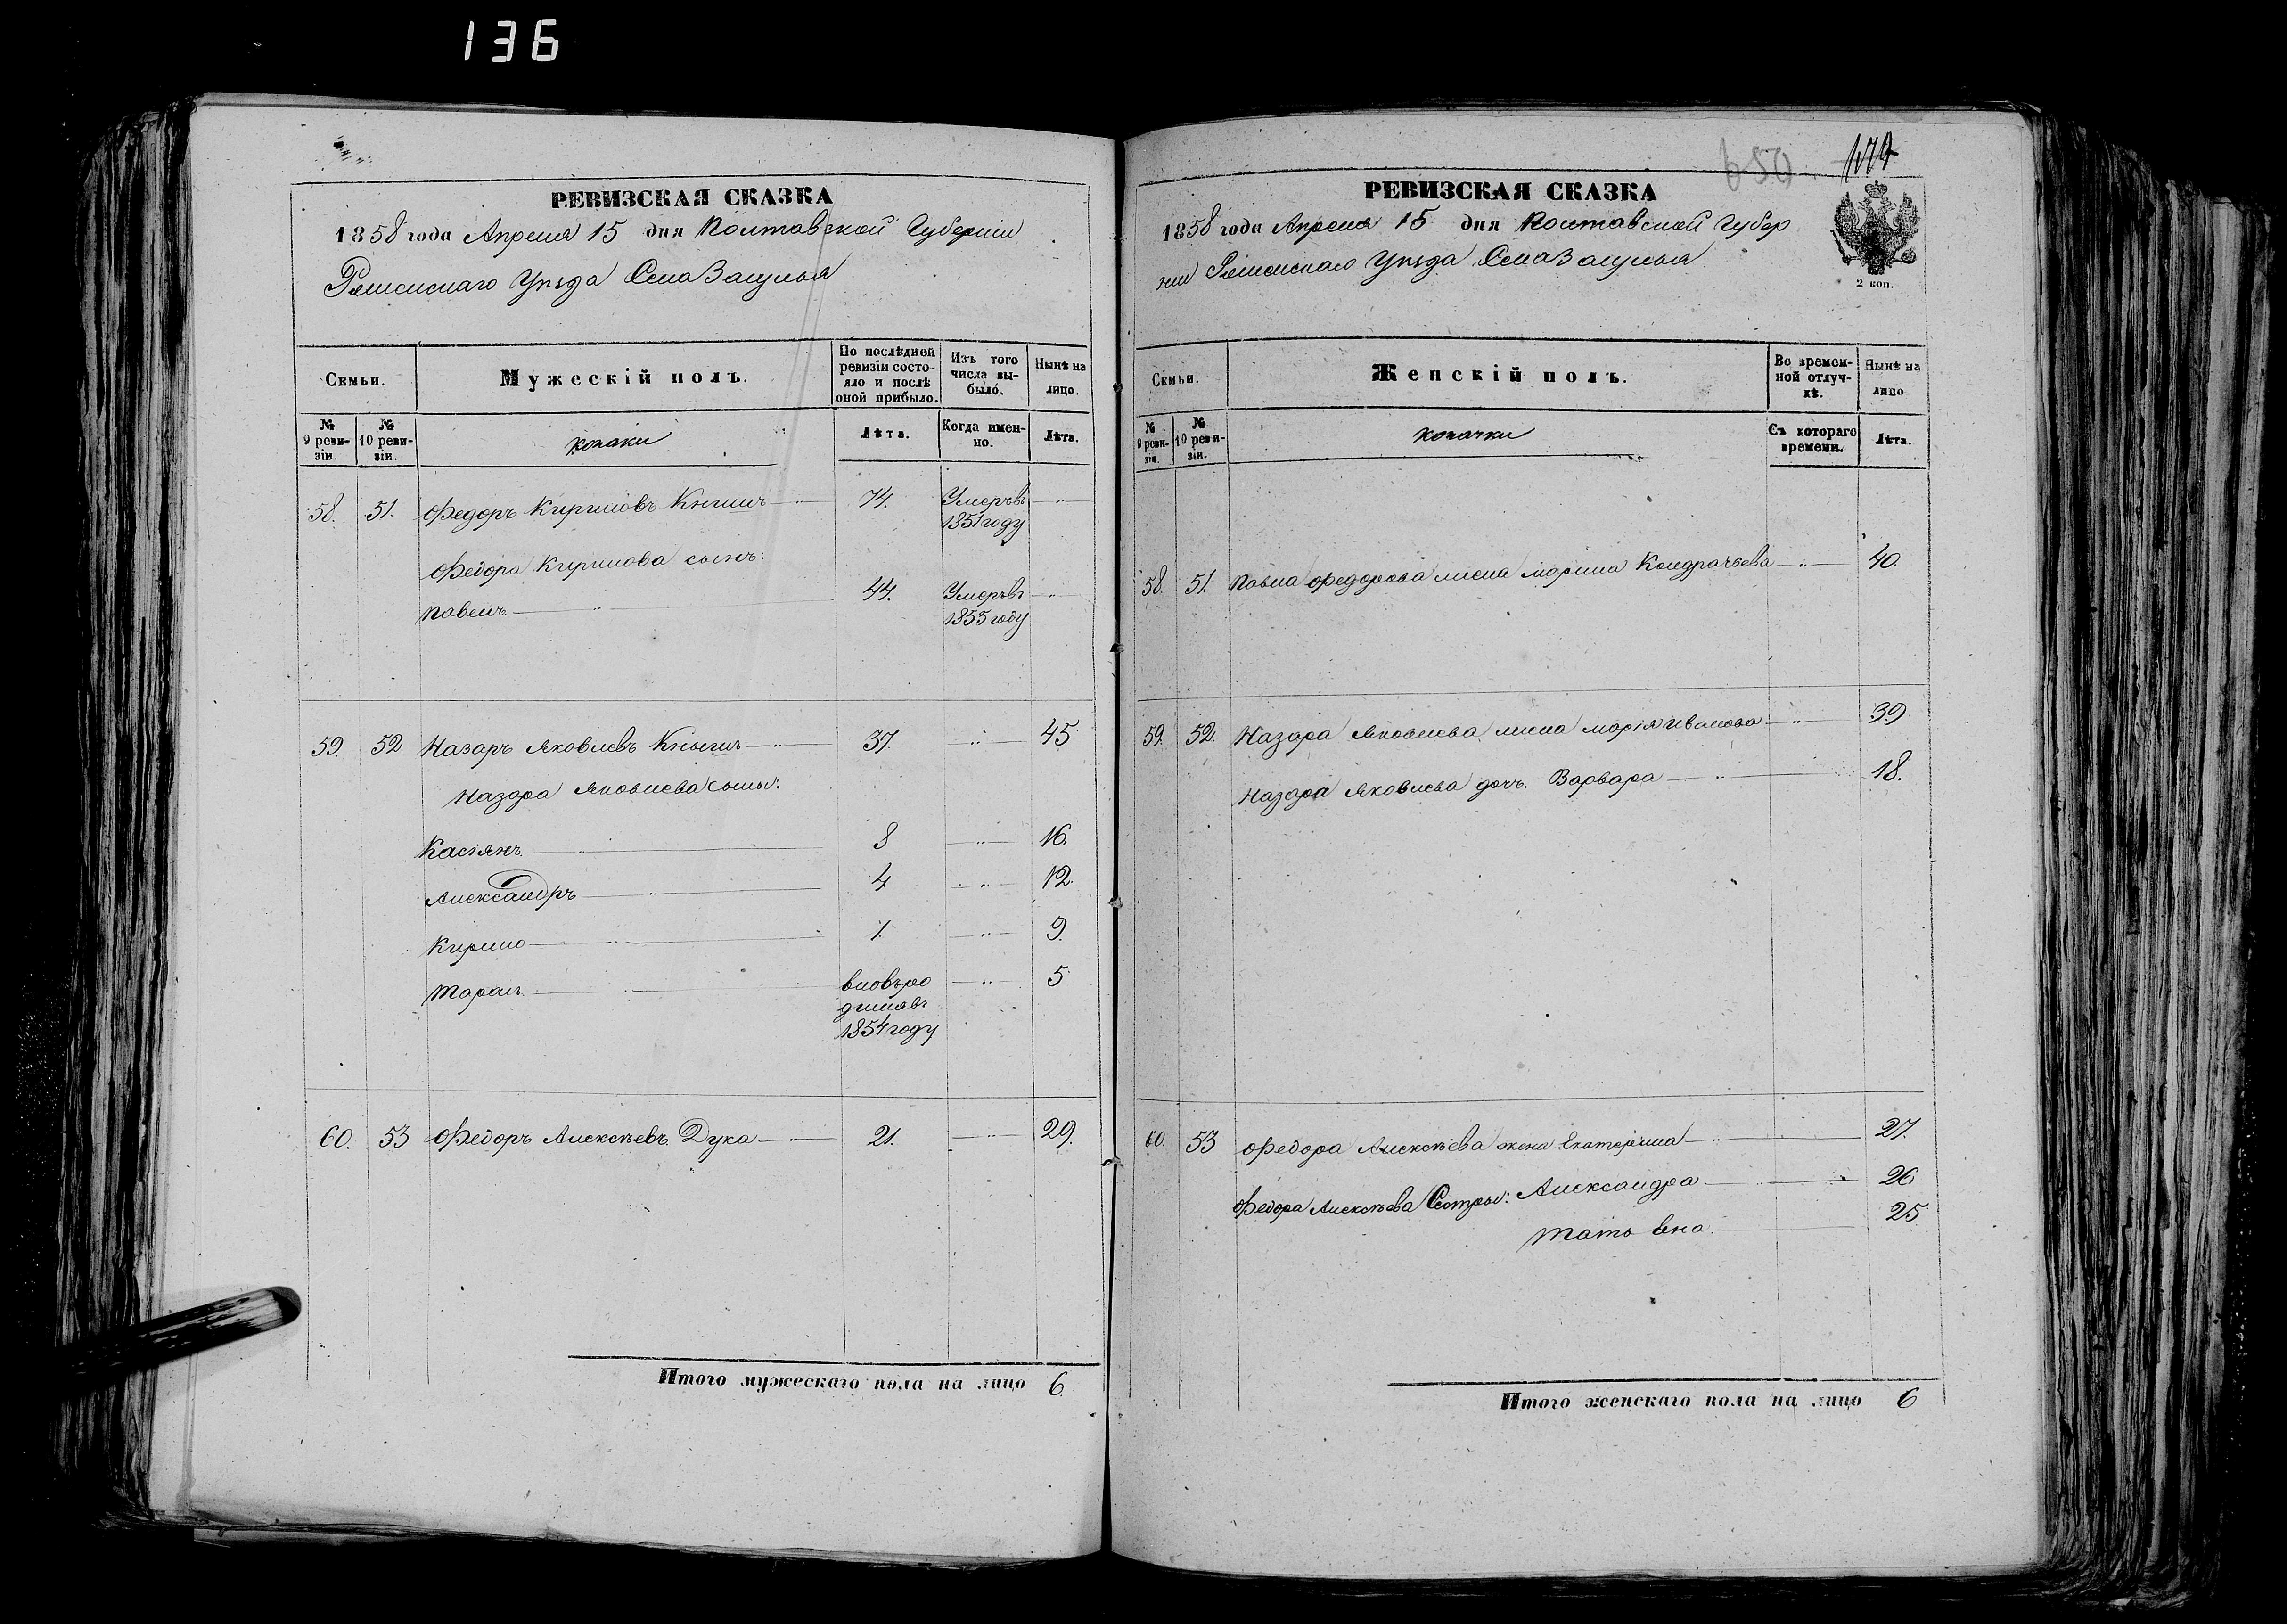 136
РЕВИЗСКАЯ СКАЗКА
1858 года Апреля 15 дня Полтавской Губернии
Роменскаго Уѣзда Села Засулья
Семьи.
Мужескій полъ.
По послѣдней ревизіи состояло и послѣ оной прибыло.
Изъ того числа выбыло.
Нынѣ на лицо.
№ 9 ревизіи.
№ 10 ревизіи.
козаки
Лѣта.
Когда именно.
Лѣта.
58. 51. Федоръ Кириловъ Книшъ 74. Умеръ въ
1851 году
Федора Кирилова сынъ:
Павелъ 44. Умеръ въ
1855 году
59. 52. Назаръ Яковлевъ Книшъ 37. 45
Назара Яковлева сыны:
Касіянъ 8 16.
Александръ 4 12.
Кирило 1. 9.
Тарасъ вновь ро 5
дился въ
1854 году
60. 53 Федоръ Алексѣевъ Дука 21. 29.
Итого мужескаго пола на лицо 6.
650
РЕВИЗСКАЯ СКАЗКА
1858 года Апреля 15 дня Полтавской Губер
нии Роменскаго Уѣзда Села Засулья
2 коп.
Семьи.
Женскій полъ.
Во временной отлучкѣ.
Нынѣ на лицо
№ 9 ревизіи.
№ 10 ревизіи.
козачки
Съ котораго времени.
Лѣта.
58. 51. Павла Федорова жена Марина Кондратьева 40.
59. 52. Назара Яковлева жена Марія Иванова 39
Назара Яковлева дочь Варвара 18.
60. 53 Федора Алексѣева жена Екатерина 27.
Федора Алексѣева Сестры: Александра 26
Татьяна. 25
Итого женскаго пола на лицо 6